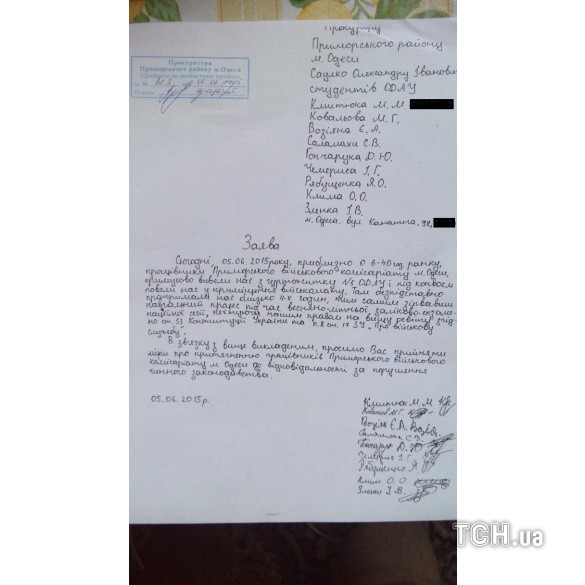 Прокурору
Приморського району
м. Одеси
Саулко Олександру Івановичу
студентів ОДАУ
Климюка М. М.
Ковальова М. Г.
Возіяна Є. А.
Саламахи С. В.
Гончарука Д. Ю.
Чемериса І. Г.
Рябущенка Я. О.
Клима О. О.
Зленка І. В.
м. Одеса, вул Канатна, 99,
Прокуратура
Приморського району м. Одеси
Заява
Сьогодні 05.06.2015 року, приблизно о 6-40 год. ранку,
працівники Приморського військового комісаріату м. Одеси,
примусово вивели нас з гуртожитку №5 ОДАУ і під конвоєм
повели нас у приміщення військомату. Там безпідставно
протримали нас близько 4-х годин, тим самим зірвавши
навчальний процес під час весняно-літньої заліково-екзаме-
наційної сесії, нехтуючи нашим правом на вищу освіту згід-
но ст. 53 Конституції України та ст. 17 ЗУ "Про військову
службу".
В зв'язку з вище викладеним, просимо Вас прийняти
міри про притягненню працівників Приморського військового
комісаріату м. Одеси до відповідальності за порушення
чинного законодавства.
05.06.2015р.
Климюка М. М
Ковальов М. Г.
Возіян Є. А.
Саламаха С. В.
Гончарук Д. Ю
Чемерис І. Г
Рябущенко Я.
Клим О. О
Зленко І. В.
ТСН.ua